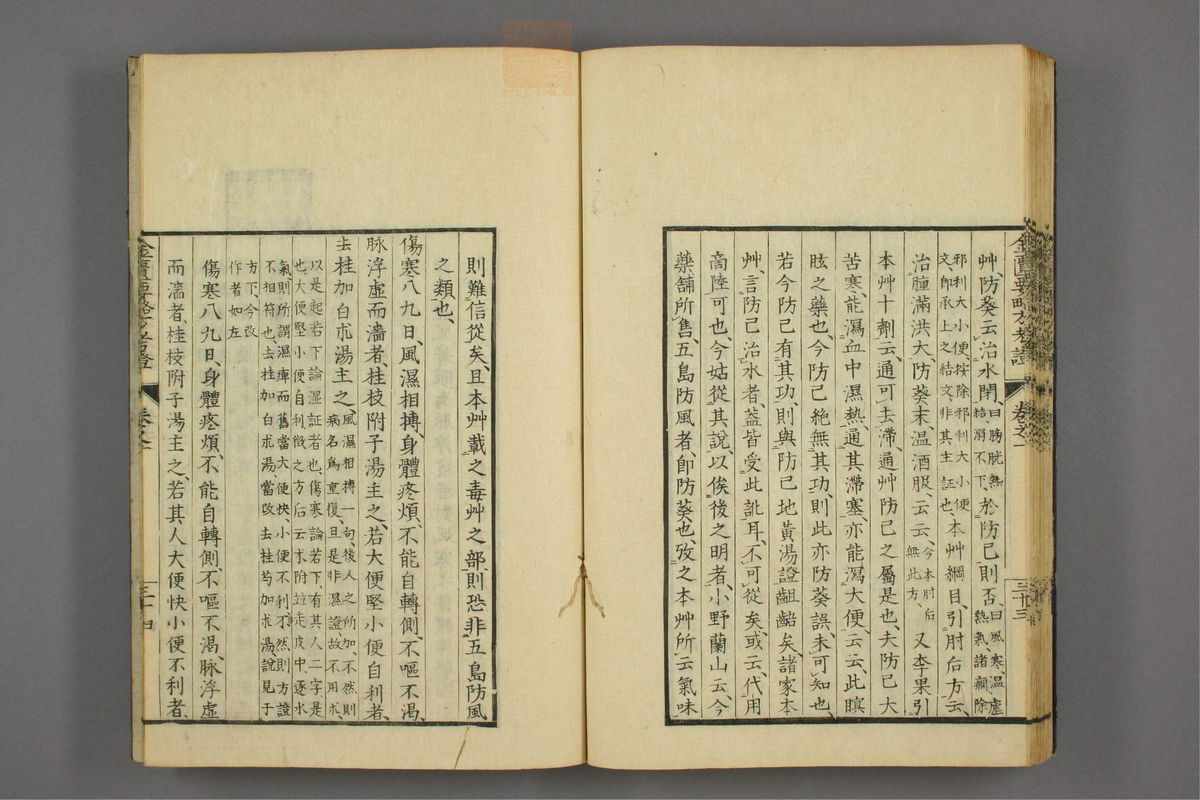 艸、防葵云、治水閉、曰、膀胱熱結、溺不下、於防己則否、曰風寒溫瘧熱氣、諸癇、除
邪、利大小便、按除邪、利大小便文、卽承上之結文、非其主証也、本艸綱目、引肘后方云、
治腫滿洪大、防葵末、温酒服、云云、今本肘后無此方、又李杲引
本艸十劑云、通可去滯、通艸防己之屬是也、夫防己大
苦寒、能瀉血中濕熱、通其滯塞、亦能瀉大便、云云、此瞑
眩之藥也、今防己絶無其功、則此亦防葵誤、未可知也、
若今防己有其功、則與防己地黃湯證齟齬矣、諸家本
艸、言防己治水者、蓋皆受此訛耳、不可從矣、或云、代用
商陸可也、今姑從其說、以俟後之明者、小野蘭山云、今
藥舖所售、五島防風者、卽防葵也、攷之本艸所云氣味
則難信從矣、且本艸載之毒艸之部、則恐非五島防風
之類也、
傷寒八九日、風濕相搏、身體疼煩、不能自轉側、不嘔不渴、
脉浮虛而濇者、桂枝附子湯主之、若大便堅、小便自利者、
去桂加白朮湯主之、風濕相搏一句、後人之所加、不然則病名爲重復、且是非濕證、故不用朮、
以是起、若下論湿証者也、傷寒論若下、有其人二字、是也、大便堅、小便自利、徵之方后云、朮附竝走皮中、逐水
氣、則所謂濕痺、而舊當大便快、小便不利、不然則方證不相符也、去桂加白朮湯、當改去桂芍加朮湯、說見于
方下、今改作者如左
傷寒八九日、身體疼煩、不能自轉側、不嘔不渴、脉浮虛
而濇者、桂枝附子湯主之、若其人大便快、小便不利者、
卷之一
三十三
三十四